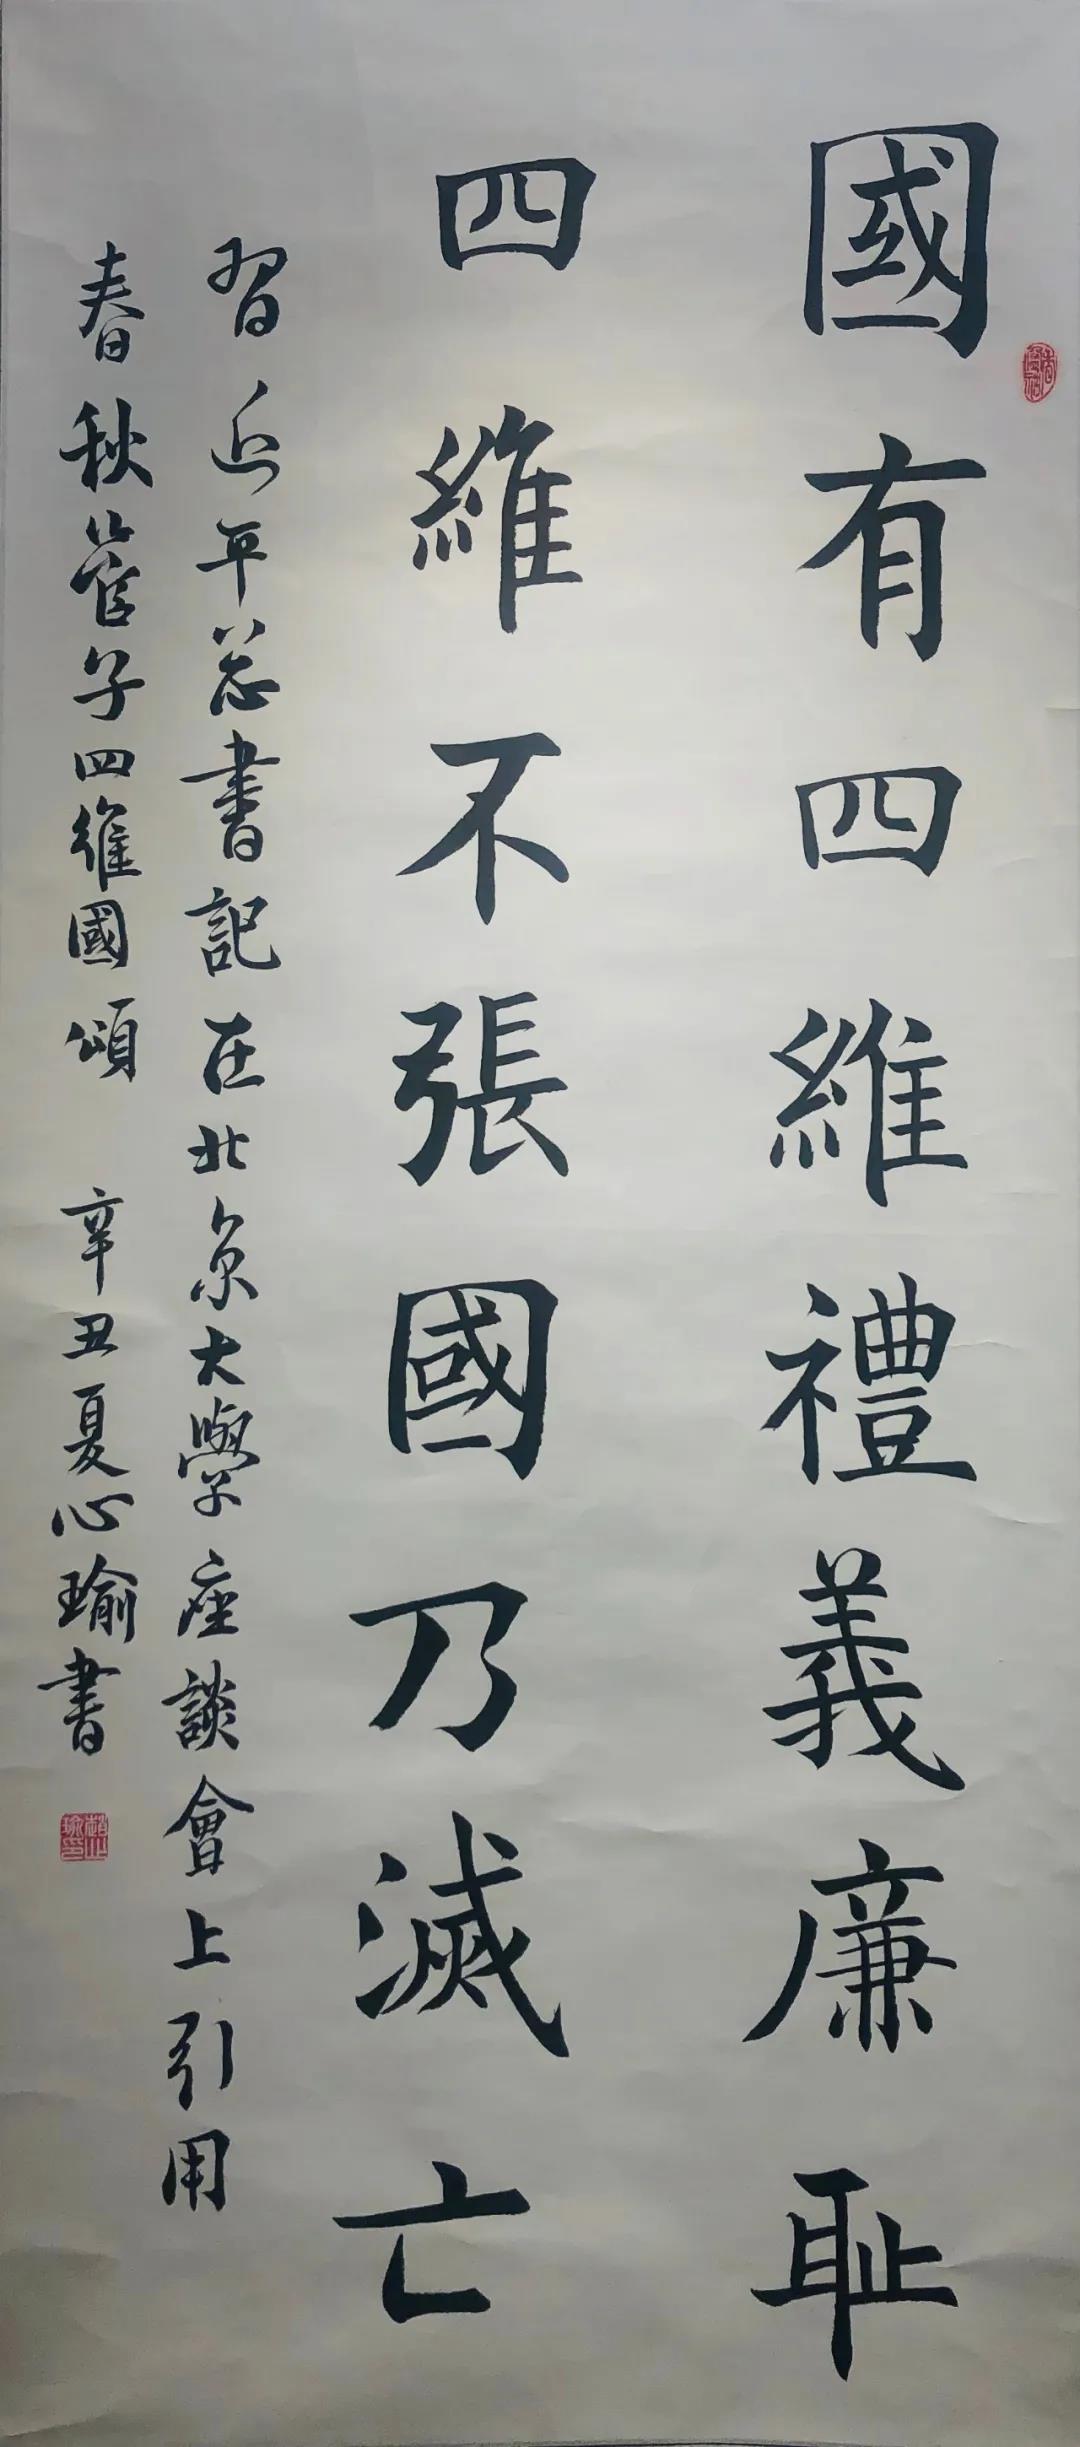 國有四維禮義廉耻
四維不張國乃滅亡
習近平总書記在北京大學座談會上引用
春秋管子四維國頌 辛丑夏心瑜書